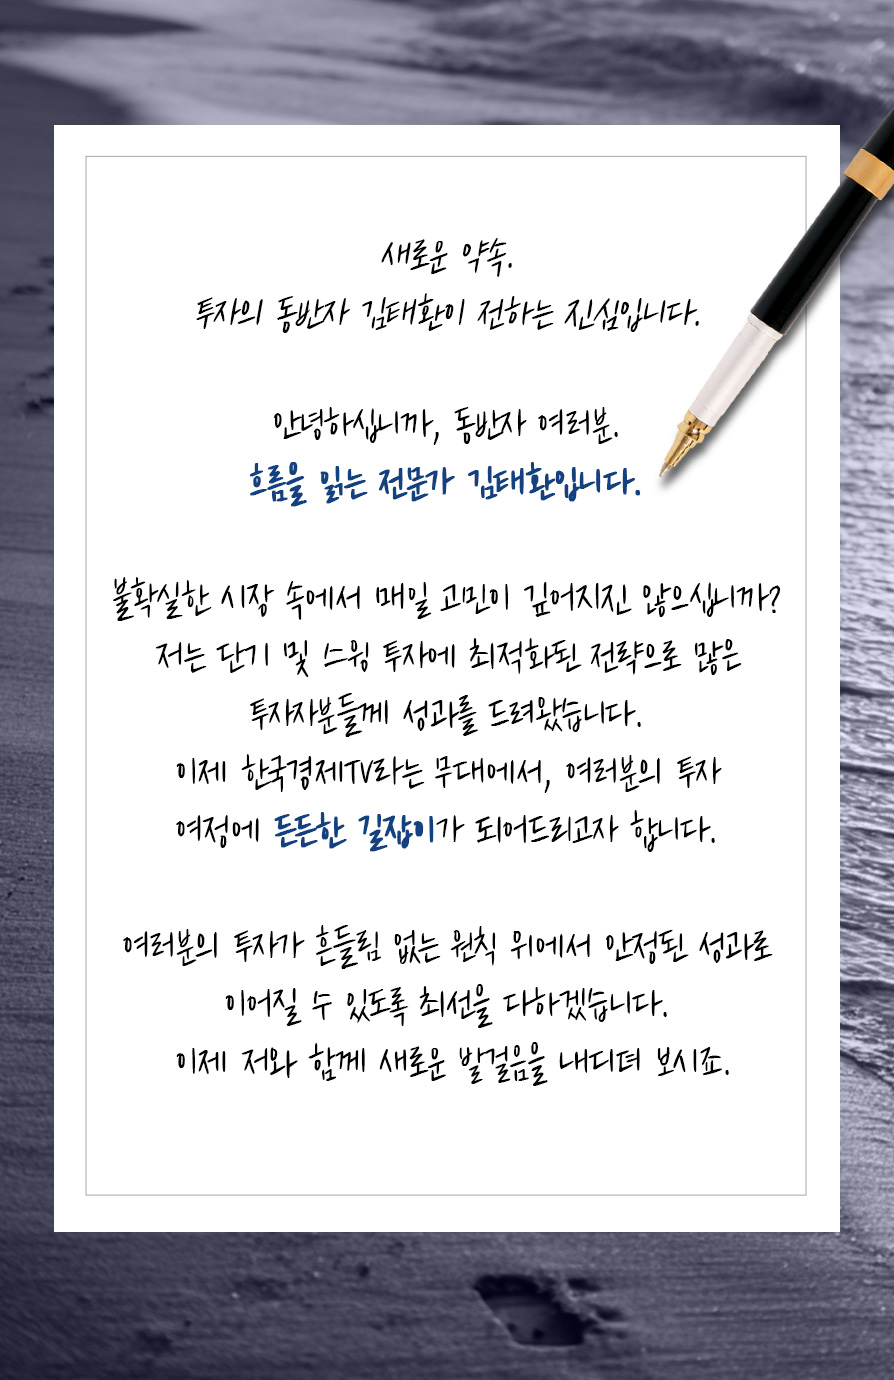 새로운 약속.
투자의 동반자 김태환이 전하는 진심입니다.
안녕하십니까, 동반자 여러분.
흐름을 읽는 전문가 김태환입니다.
불확실한 시장 속에서 매일 고민이 깊어지진 않으십니까?
저는 단기 및 스윙 투자에 최적화된 전략으로 많은
투자자분들께 성과를 드려왔습니다.
이제 한국경제TV라는 무대에서, 여러분의 투자
여정에 든든한 길잡이가 되어드리고자 합니다.
여러분의 투자가 흔들림 없는 원칙 위에서 안정된 성과로
이어질 수 있도록 최선을 다하겠습니다.
이제 저와 함께 새로운 발걸음을 내디뎌 보시죠.